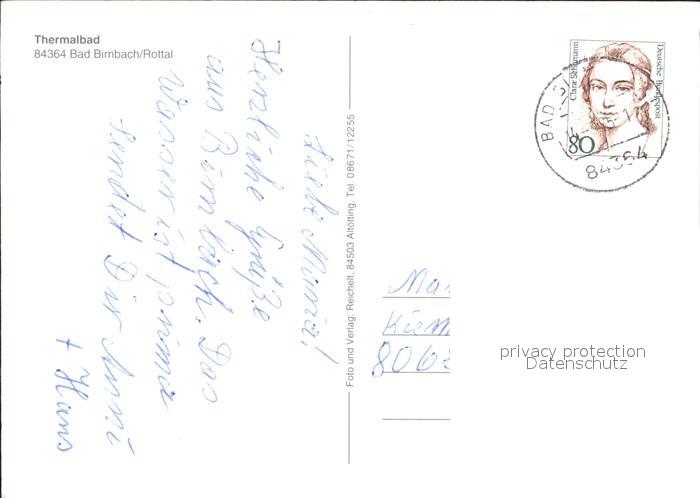 Thermalbad
84364 Bad Birnbach/Rottal
Liebe Maria!
Herzliche Grüße
aus Birnbach. Das
Wasser ist prima
sendet Dir Anni
+ Hans
Foto und Verlag: Reichelt, 84503 Altötting, Tel. 08671/12255
Clara Schumann
Deutsche Bundespost
80
BAD
84364
Ma
Kiem
8063
privacy protection
Datenschutz